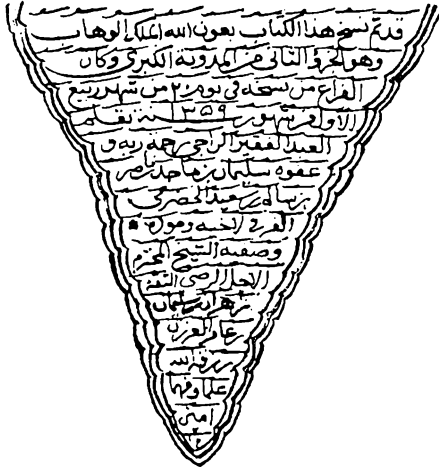 قد تم نسخ هذا الكتاب بعون الله الملك الوهاب
وهو الجزؤ الثاني من المدونة الكبرى وكان
الفراغ من نسخه في يوم ٢٠ من شهر ربيع
الأول من شهور سنة ١٣٥٩ بقلم
العبد الفقير الراجي رحمة ربه و
عفوه سليمان بن ماجد بن ناصر
بن سالم بن سعيد الحضرمي
لأخيه
وصفيه الشيخ المحترم
الأجل الرضي الثقة
زهران بن سلمان
رزقه الله
علما وفهما
امين